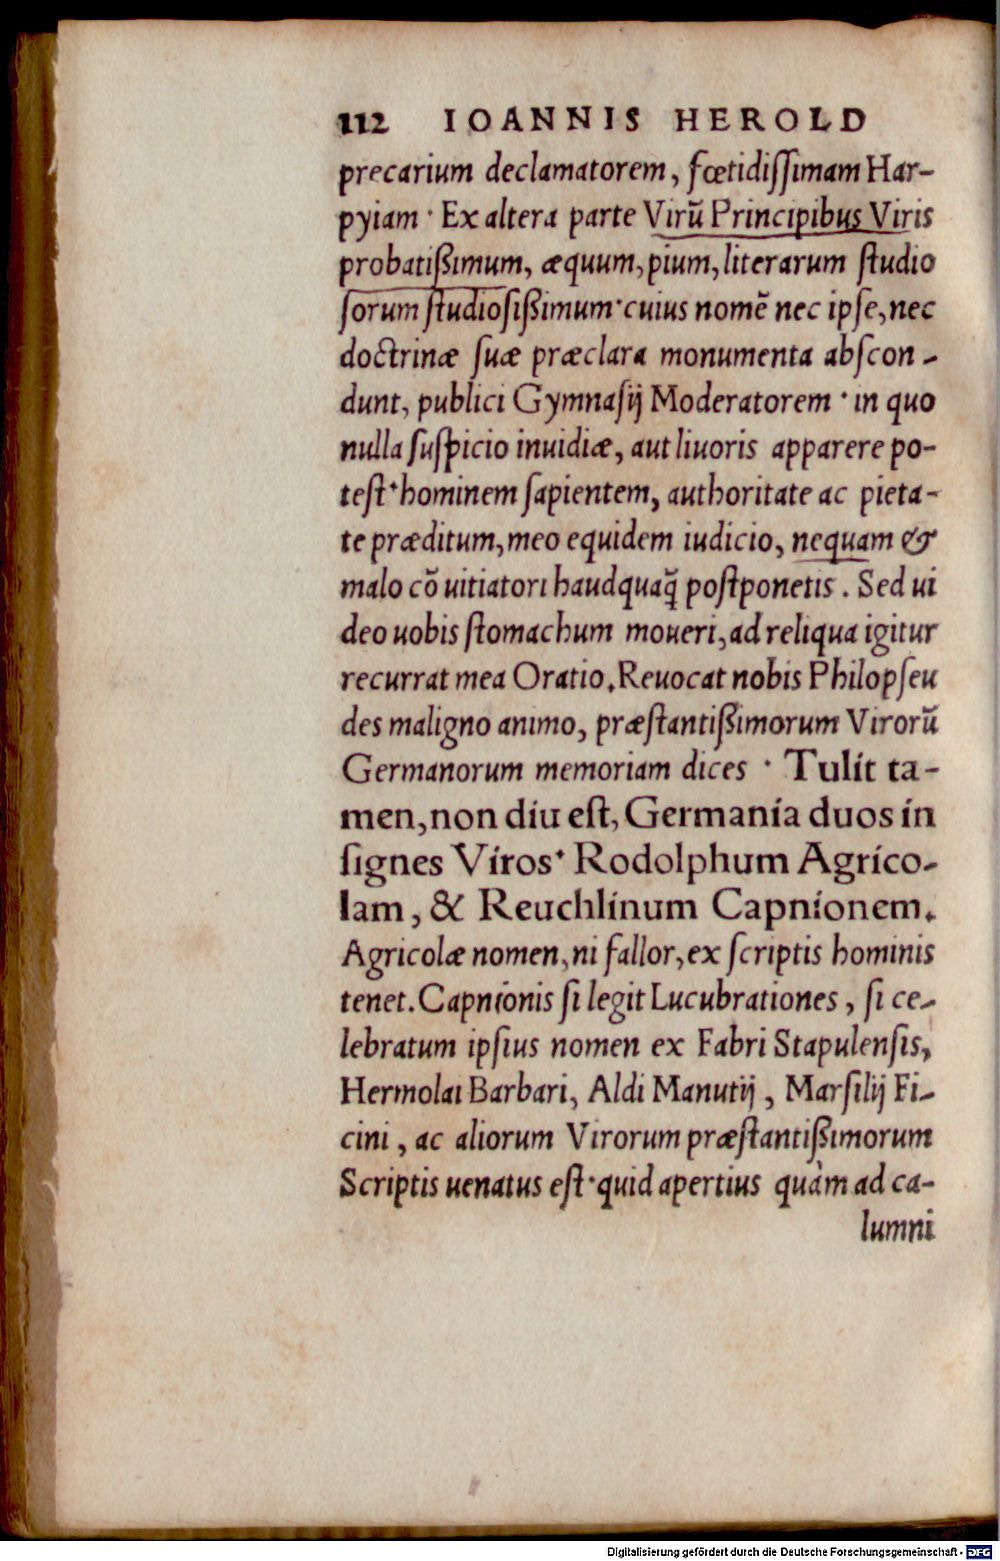 112 IOANNIS HEROLD
precarium declamatorem, fœtidiſſimam Har-
pyiam · Ex altera parte Virũ Principibus Viris
probatißimum, æquum, pium, literarum ſtudio
ſorum ſtudioſißimum · cuius nomẽ nec ipſe, nec
doctrinæ ſuæ præclara monumenta abſcon-
dunt, publici Gymnaſij Moderatorem · in quo
nulla ſuſpicio inuidiæ, aut liuoris apparere po-
teſt · hominem ſapientem, authoritate ac pieta-
te præditum, meo equidem iudicio, nequam &
malo cõuitiatori haudquaq̃ poſtponetis. Sed ui
deo uobis ſtomachum moueri, ad reliqua igitur
recurrat mea Oratio. Reuocat nobis Philopſeu
des maligno animo, præſtantißimorum Virorũ
Germanorum memoriam dices · Tulit ta-
men, non diu eſt, Germania duos in
ſignes Viros · Rodolphum Agrico-
lam, & Reuchlinum Capnionem.
Agricolæ nomen, ni fallor, ex ſcriptis hominis
tenet. Capnionis ſi legit Lucubrationes, ſi ce-
lebratum ipſius nomen ex Fabri Stapulenſis,
Hermolai Barbari, Aldi Manutij, Marſilij Fi-
cini, ac aliorum Virorum præſtantißimorum
Scriptis uenatus eſt · quid apertius quàm ad ca-
lumni
Digitalisierung gefördert durch die Deutsche Forschungsgemeinschaft - DFG